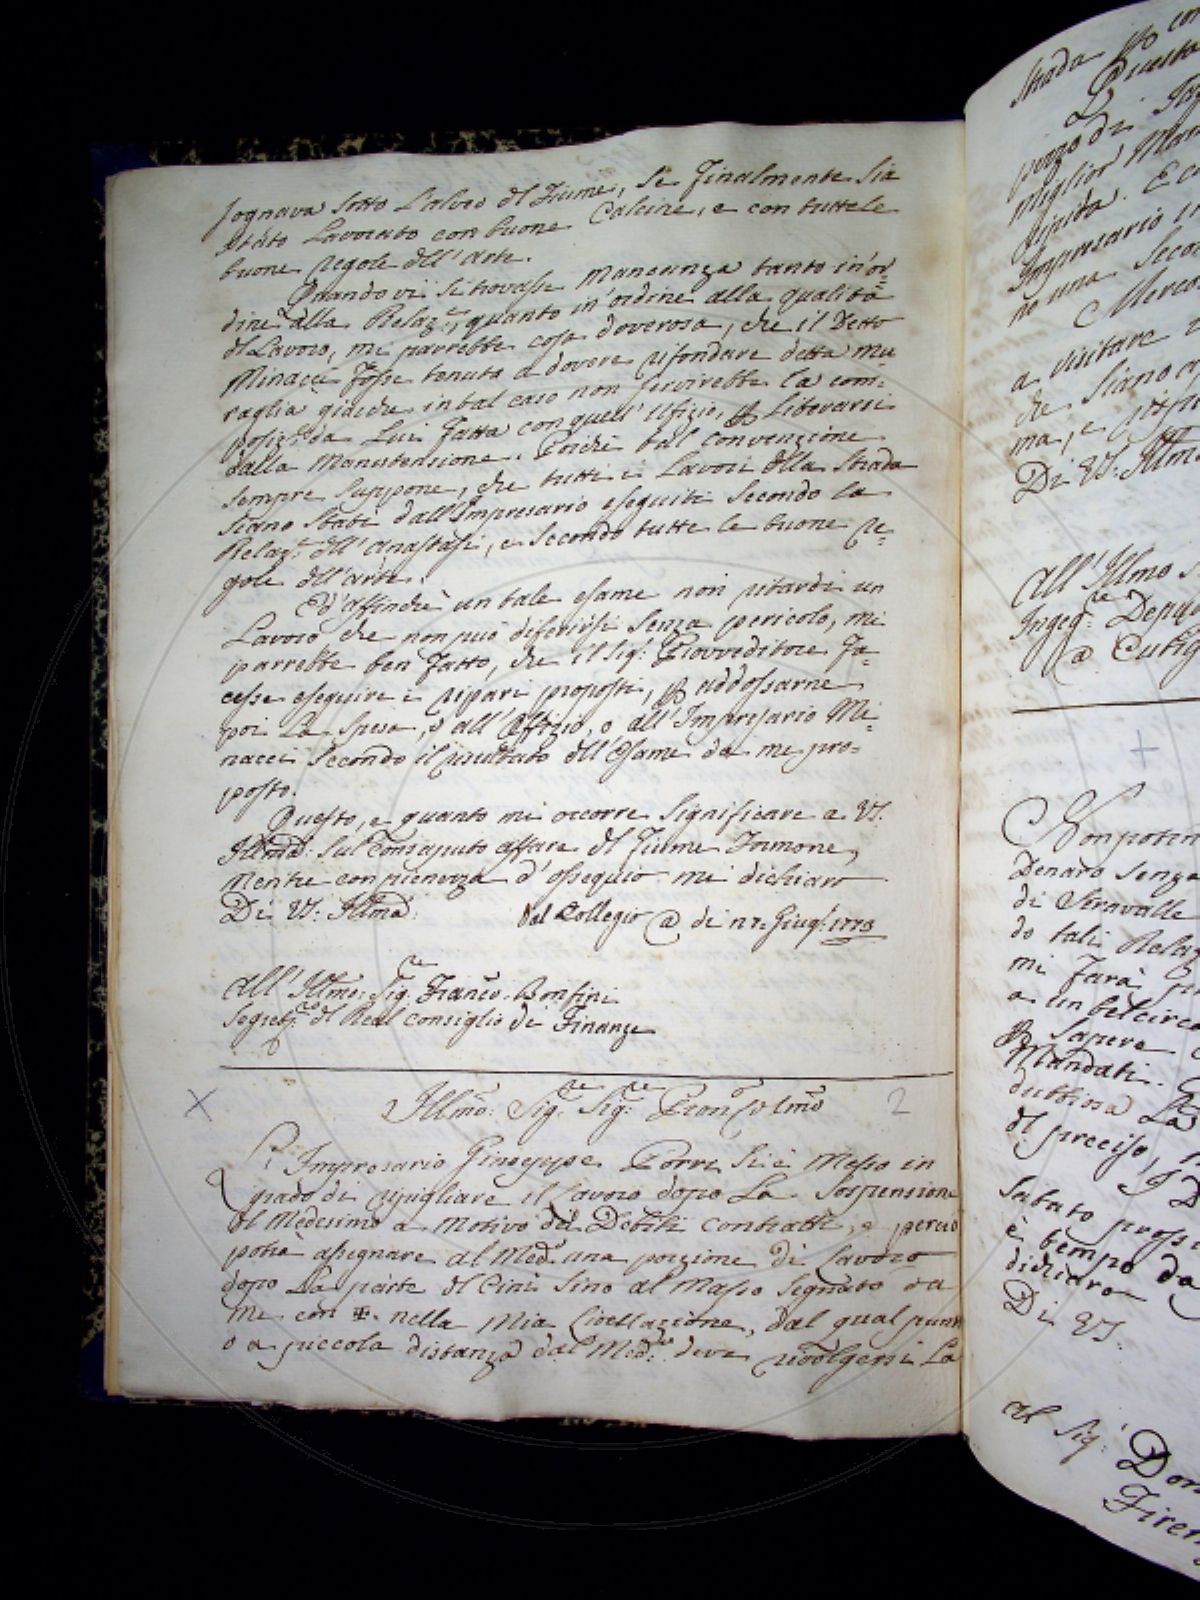 fognava sotto L'alveo dl Fiume, Se Finalmente Sia
Stato Lavorato con buone Calcine, e con tutte le
buone regole dell'arte.
Quando vi si trovasse mancanza tanto in or=
dine alla Relaz.e, quanto in ordine alla qualità
dl Lavoro, mi parrebbe cosa doverosa, che il Detto
Minacci Fosse tenuto a dovere rifondare detta mu
raglia giacche in tal caso non servirebbe la com:
posiz.e da Lui Fatta con quell'Ufizio, p Liberarsi
dalla Manutensione. Poichè tal convenzione
sempre suppone, che tutti i Lavori dlla Strada
siano Stati dall'Impresario eseguiti Secondo la
Relaz.e dll'Anastasi, e Secondo tutte le buone re=
gole dll'arte.
Ed'affinchè un tale esame non ritardi un
Lavoro che non può diferirsi Senza pericolo, mi
parrebbe ben Fatto, che il Sig: Provveditore Fa=
cesse eseguire i ripari proposti, p addossarne
poi La Spesa, o all'Offizio, o all'Impresario Mi=
nacci Secondo il resultato dll'Esame da me pro=
posto.
Questo, e quanto mi occorre Significare a VS.
Illma: Sul consaputo affare dl Fiume
Mentre con pienezza d'ossequio mi dichiaro
Di VS: Illma: Dal Collegio @ di 27: Giug: 1778
All'Illmo: Sig.re Franco. Bonfini
Segret.rio dl Real Consiglio di Finanze
Illmo: Sig.re Sig.re Pron Colmo
2
L'Impresario Giuseppe Porri Si è Messo in
grado di ripigliare il Lavoro dopo La Sospensione
dl Medesimo a Motivo dei Debiti contratti, e perciò
potrà assegnare al Med.o una porzione di Lavoro
dopo La parte dl Cini Sino al Masso Segnato da
me con nella Mia Livellazione, dal qual punto
o a piccola distanza dal Med.mo deve rivolgersi La
Strada p
Questa
pezzo di
miglior
ripida. E
Impresario
ne una Seco
Merco
a visitare
che Siano
ma, e
Di VS. Illma
All'Illmo
Ingeg.re
a Cutig
Non poten
Denaro Senza
di Seravalle
do tali Relaz
mi Farà
a un bel circo
p Sapere
Mandati.
dubbiosa La
dl preciso,
Sabato pross
è tempo da
dichiaro
Di VS
Al Sig:
Firen